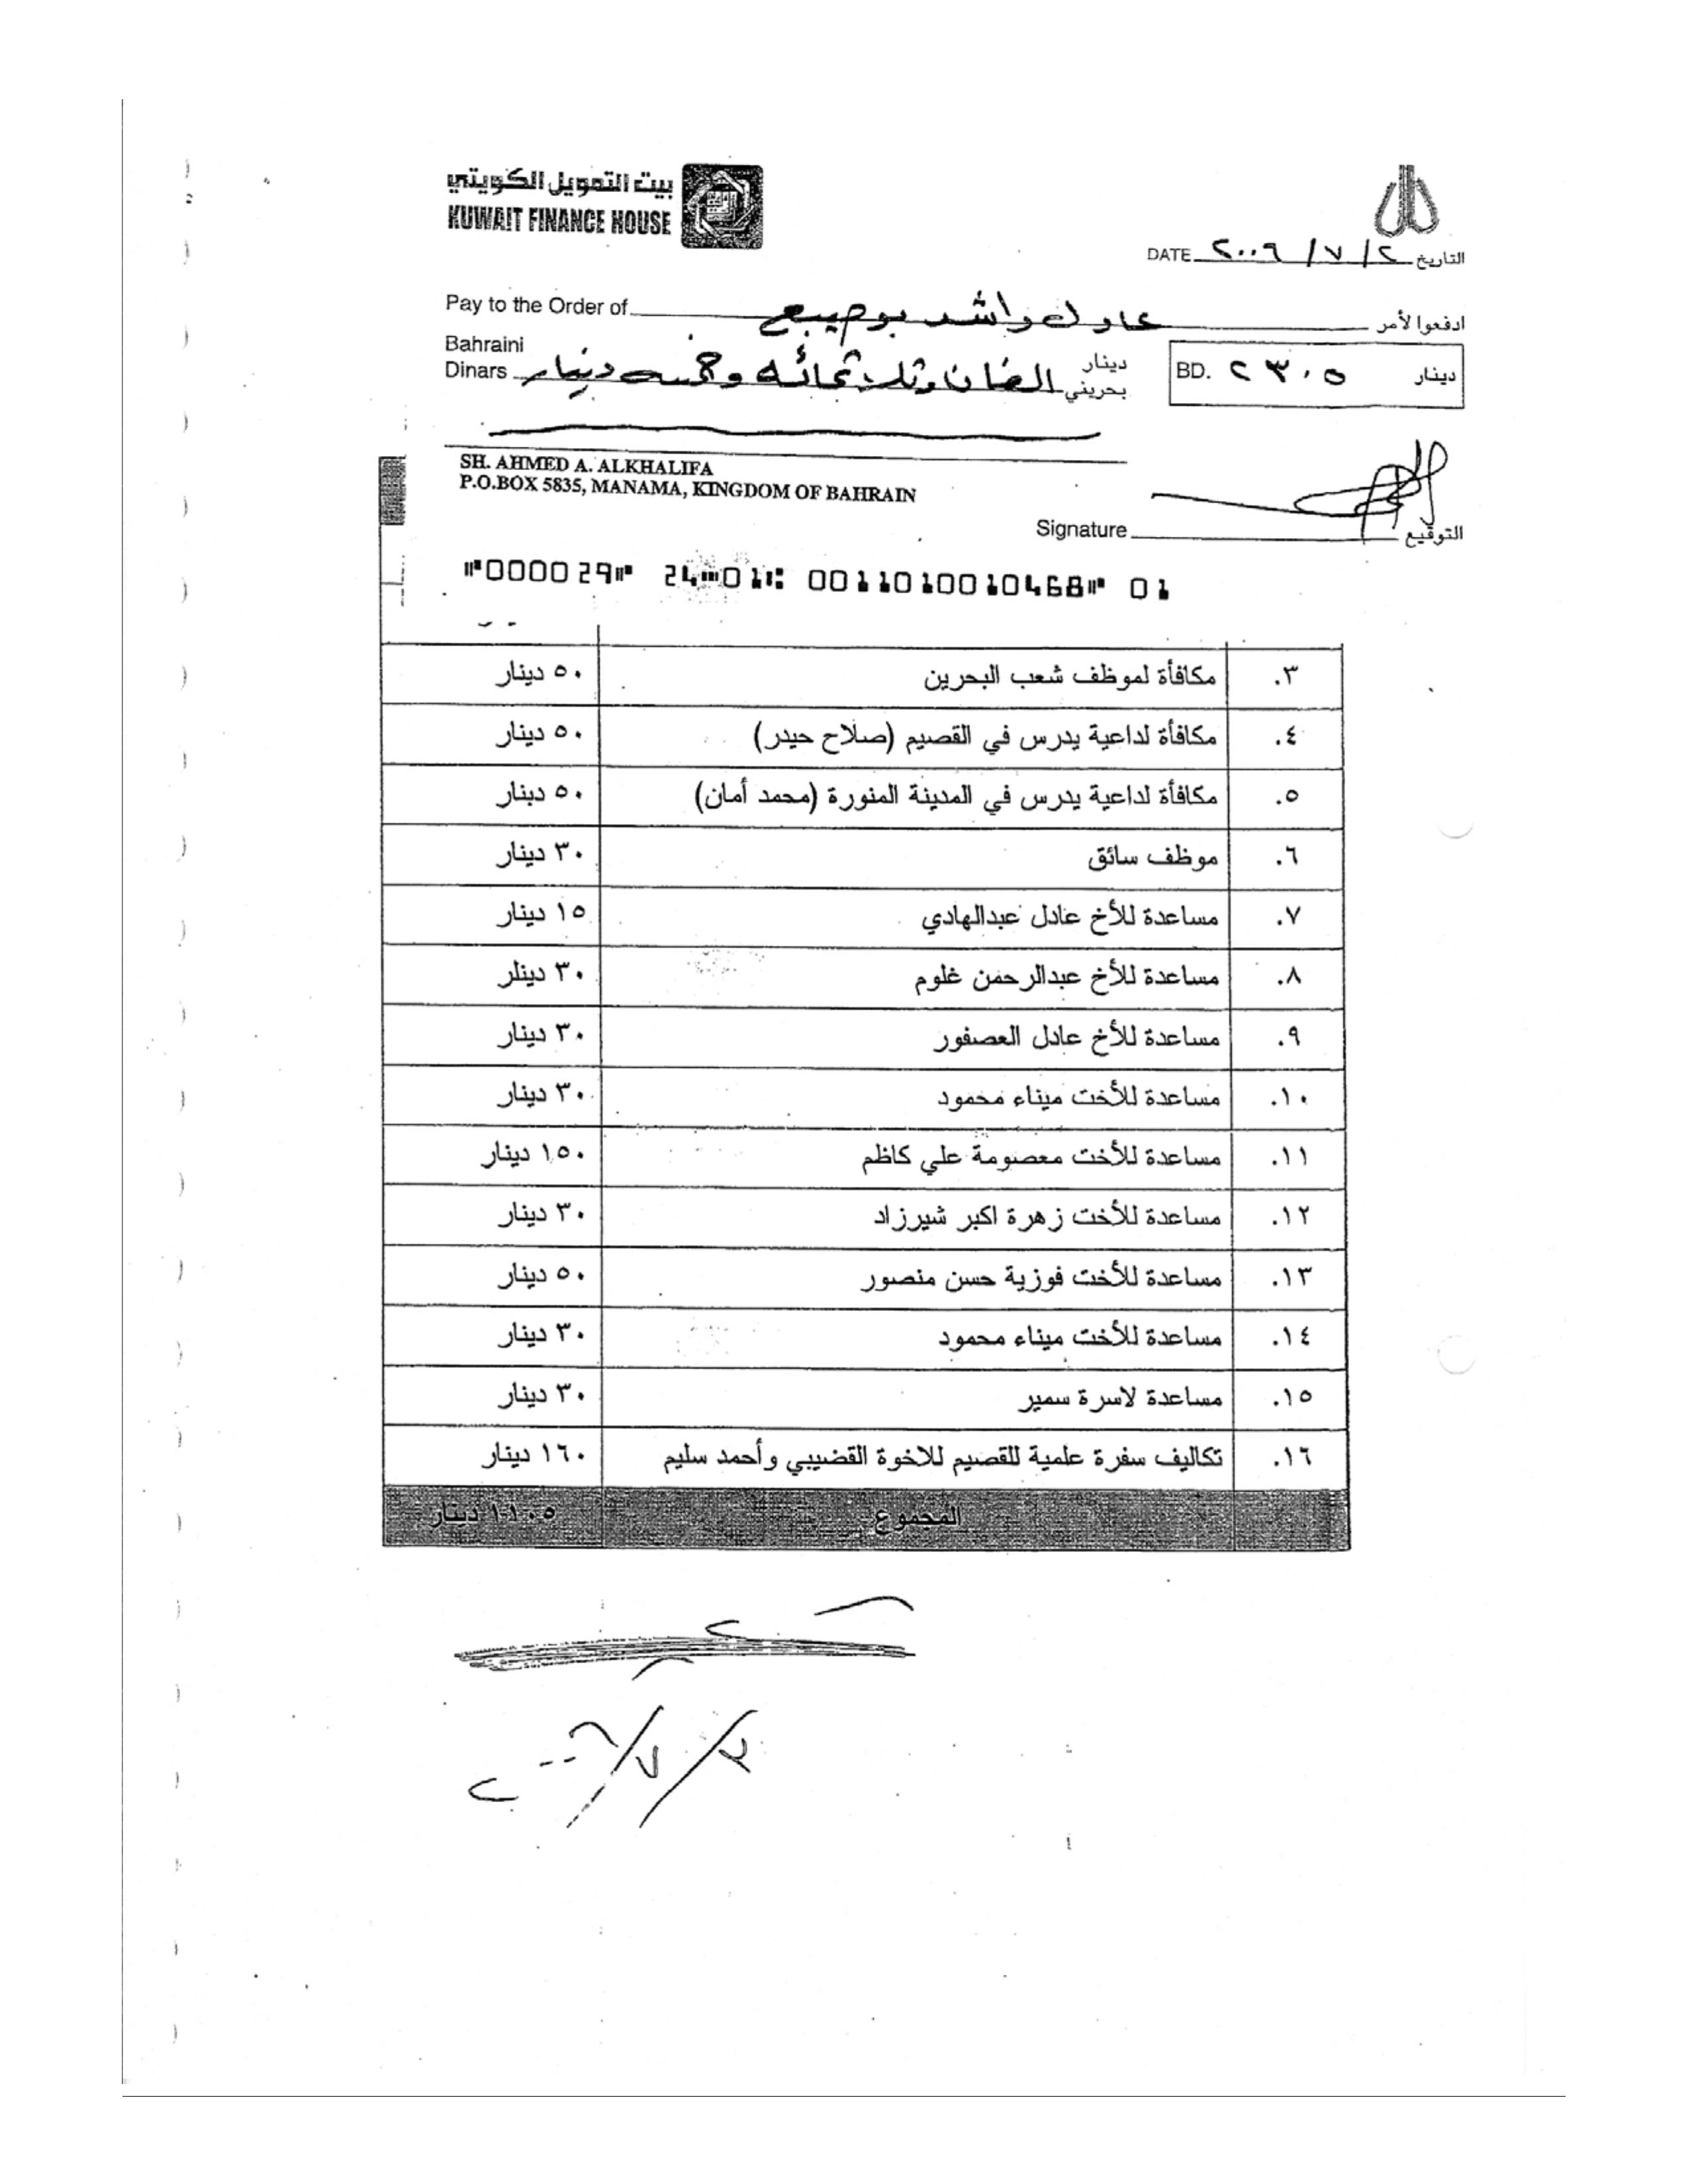 بيت التمويل الكويتي
KUWAIT FINANCE HOUSE
DATE ٢٠٠٦ / ٧ / ٢ التاريخ
Pay to the Order of عادل راشد بوصيبع ادفعوا لأمر
Bahraini Dinars ألفان وثلاثمائه وخمسه دينار دينار بحريني
BD. ٢٣٠٥ دينار
SH. AHMED A. ALKHALIFA
P.O.BOX 5835, MANAMA, KINGDOM OF BAHRAIN
Signature التوقيع
⑈000029⑈ 24⑉01⑆ 0011010010468⑈ 01
٣. مكافأة لموظف شعب البحرين ٥٠ دينار
٤. مكافأة لداعية يدرس في القصيم (صلاح حيدر) ٥٠ دينار
٥. مكافأة لداعية يدرس في المدينة المنورة (محمد أمان) ٥٠ دينار
٦. موظف سائق ٣٠ دينار
٧. مساعدة للأخ عادل عبدالهادي ١٥ دينار
٨. مساعدة للأخ عبدالرحمن غلوم ٣٠ دينلر
٩. مساعدة للأخ عادل العصفور ٣٠ دينار
١٠. مساعدة للأخت ميناء محمود ٣٠ دينار
١١. مساعدة للأخت معصومة علي كاظم ١٥٠ دينار
١٢. مساعدة للأخت زهرة اكبر شيرزاد ٣٠ دينار
١٣. مساعدة للأخت فوزية حسن منصور ٥٠ دينار
١٤. مساعدة للأخت ميناء محمود ٣٠ دينار
١٥. مساعدة لاسرة سمير ٣٠ دينار
١٦. تكاليف سفرة علمية للقصيم للاخوة القضيبي وأحمد سليم ١٦٠ دينار
المجموع ١١٠٥ دينار
٢/٧/٢٠٠٦